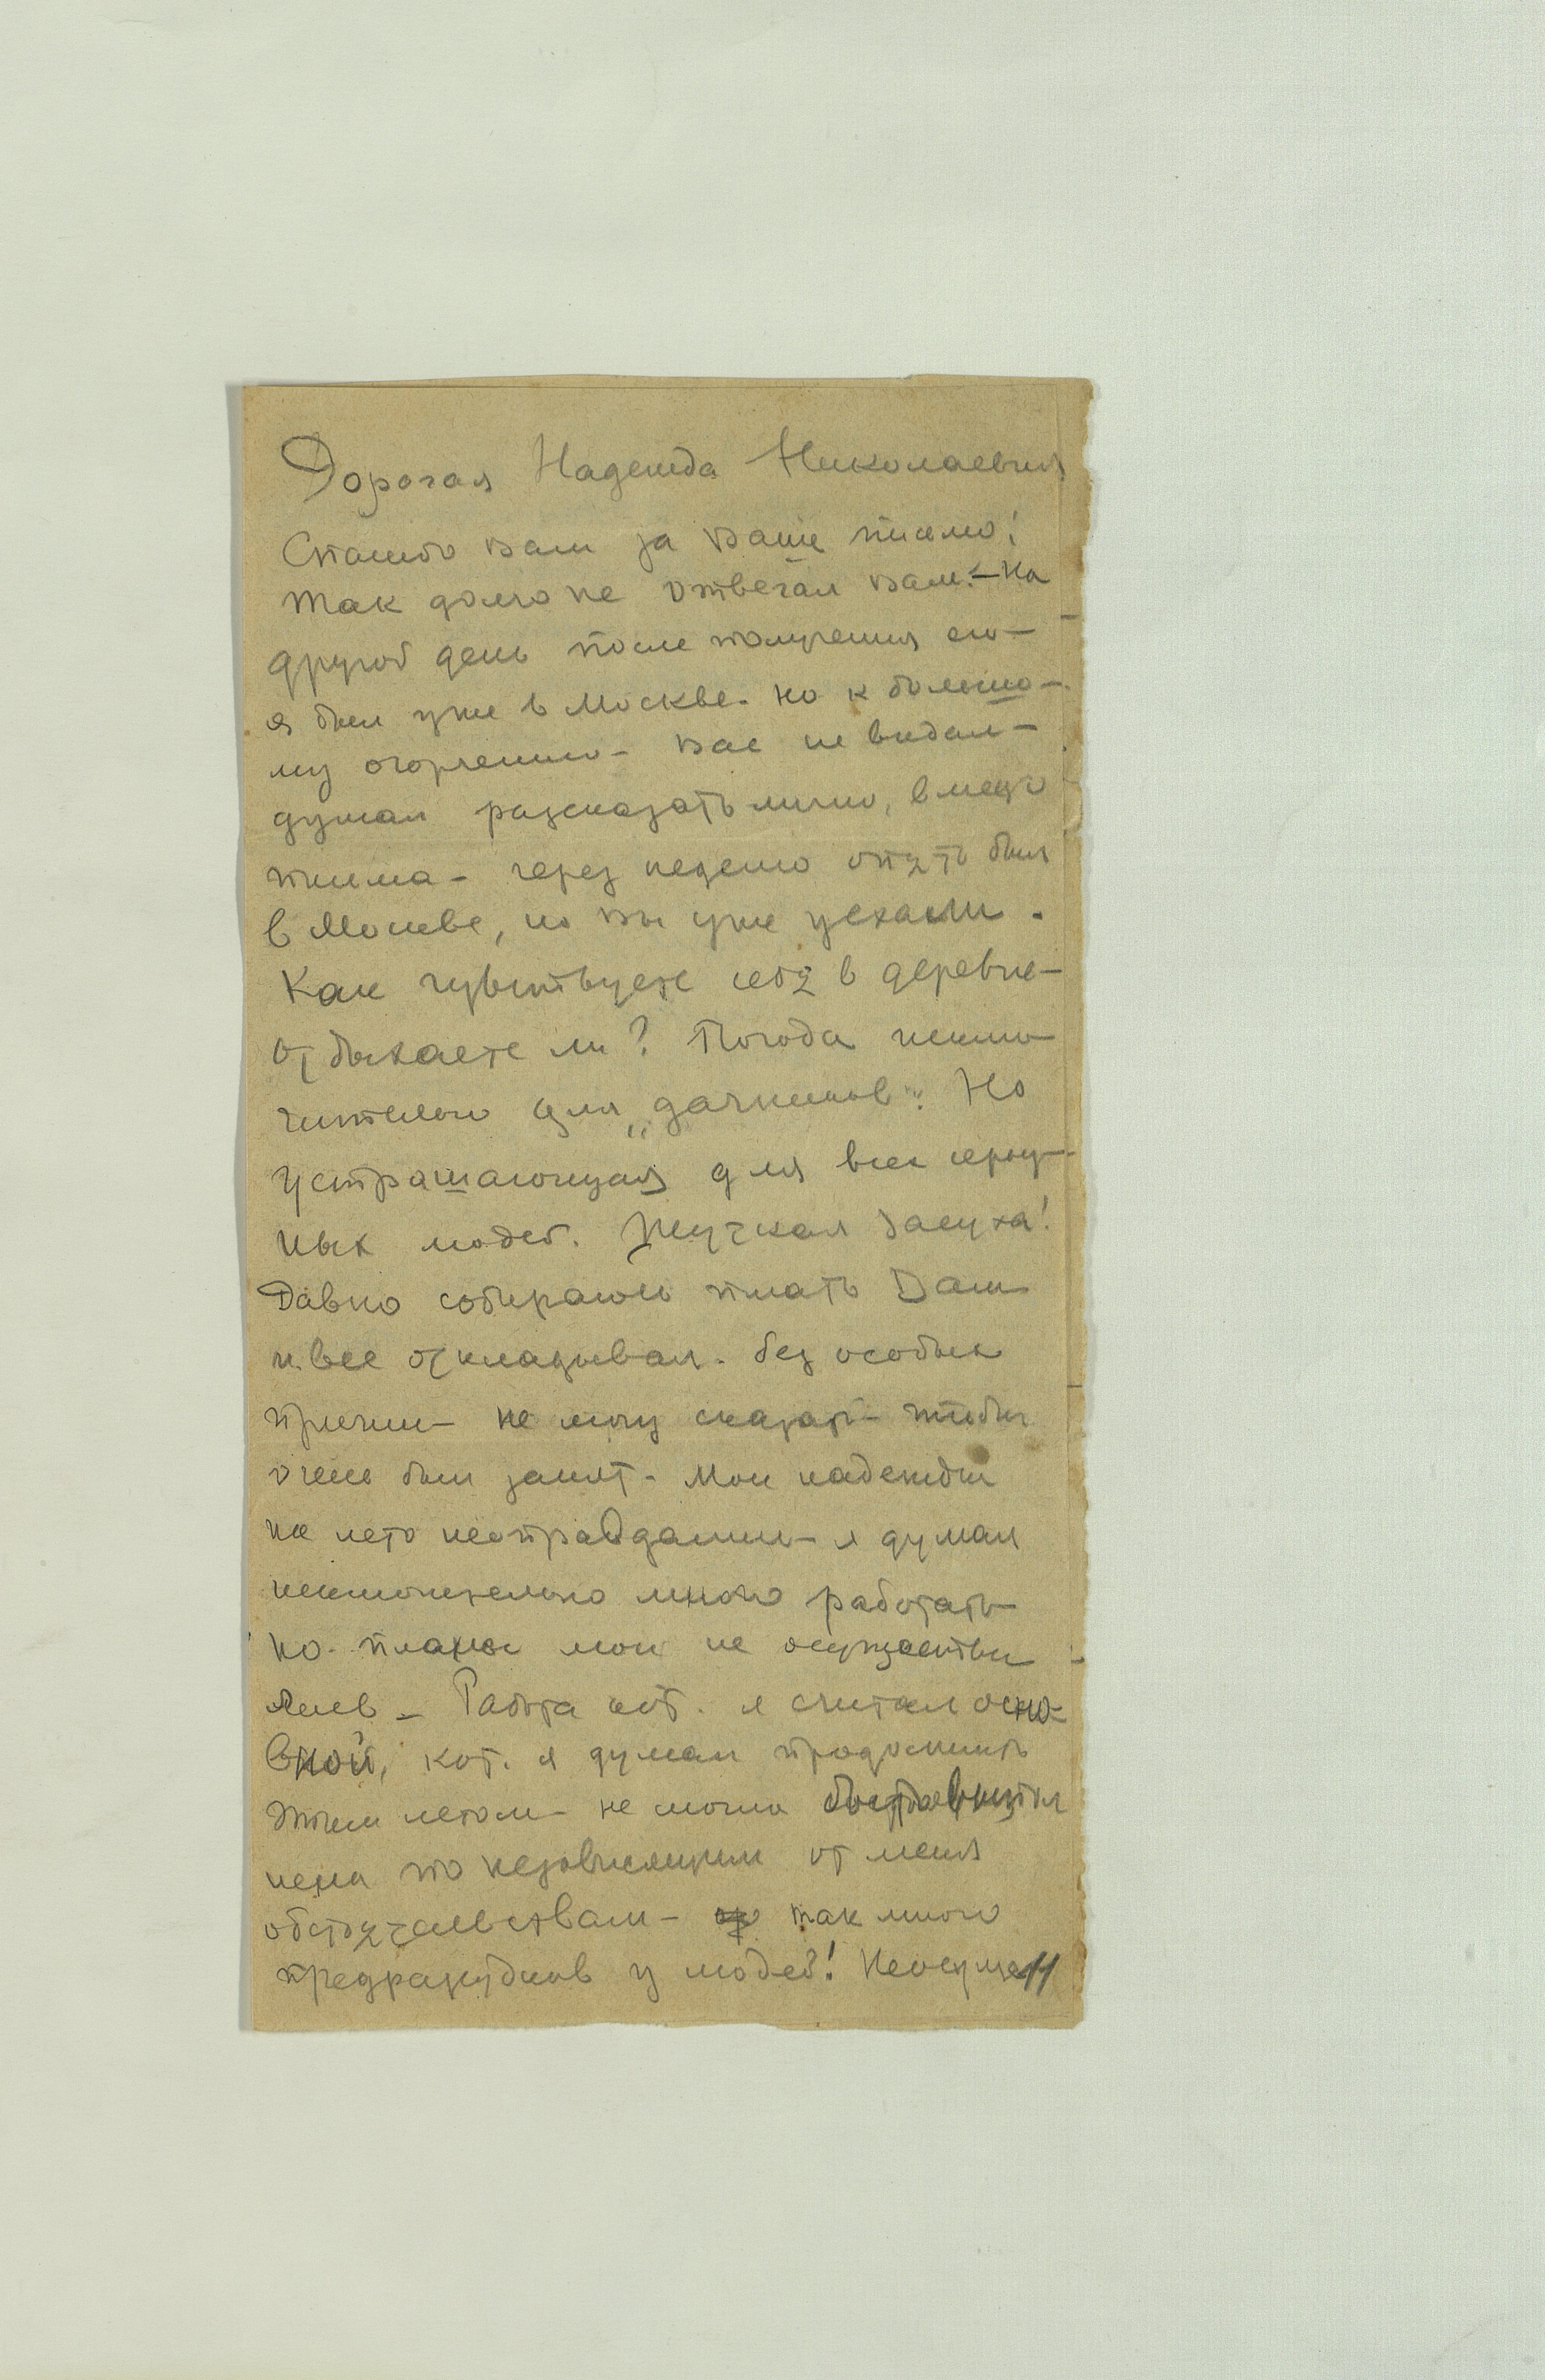 Дорогая Надежда Николаевна
Спасибо Вам за Ваше письмо!
Так долго не отвечал Вам. – На
другой день после получения его –
я был уже в Москве. но к большо–
му огорчению – Вас не видал –
думал рассказать лично, вместо
письма – через неделю опять был
в Москве, но Вы уже уехали.
Как чувствуете себя в деревне –
отдыхаете ли? Погода исклю–
чительно для „дачников". Но
устрашающая для всех серьёз–
ных людей. Жуткая засуха!
Давно собираюсь писать Вам
и все откладывал. без особых
причин – не могу сказать – чтобы
очень был занят. Мои надежды
на лето неоправданны – я думал
исключительно много работать
но. планы мои не осуществи–
лись – Работа кот. я считал осно–
вной, кот. я думал продолжить
этим летом – не могла
по независящим от меня
обстоятельствам – так много
предрассудков у людей! Неосуще
11